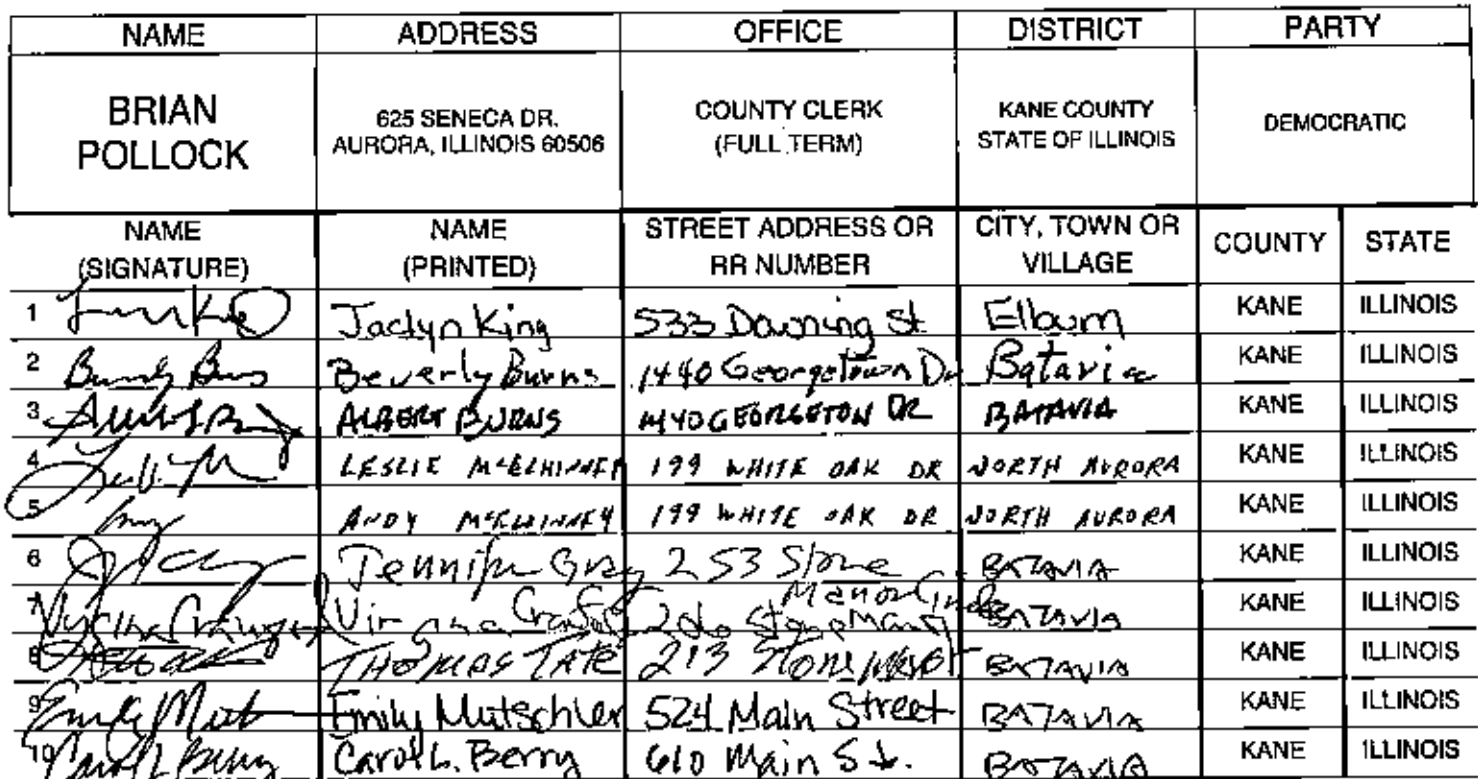 NAME ADDRESS OFFICE DISTRICT PARTY
BRIAN POLLOCK 625 SENECA DR. AURORA, ILLINOIS 60506 COUNTY CLERK (FULL TERM) KANE COUNTY STATE OF ILLINOIS DEMOCRATIC
NAME (SIGNATURE) NAME (PRINTED) STREET ADDRESS OR RR NUMBER CITY, TOWN OR VILLAGE COUNTY STATE
1 Jaclyn King 533 Downing St Elburn KANE ILLINOIS
2 Beverly Burns 1440 Georgetown Dr Batavia KANE ILLINOIS
3 ALBERT BURNS 1440 GEORGETON DR BATAVIA KANE ILLINOIS
4 LESLIE McELHINNEY 199 WHITE OAK DR NORTH AURORA KANE ILLINOIS
5 ANDY McELHINNEY 199 WHITE OAK DR NORTH AURORA KANE ILLINOIS
6 Jennifer Gray 253 Stone Manor BATAVIA KANE ILLINOIS
7 Virginia BATAVIA KANE ILLINOIS
8 THOMAS TATE 213 BATAVIA KANE ILLINOIS
9 Emily Mutschler 524 Main Street BATAVIA KANE ILLINOIS
10 Carol L. Berry 610 Main St. BATAVIA KANE ILLINOIS